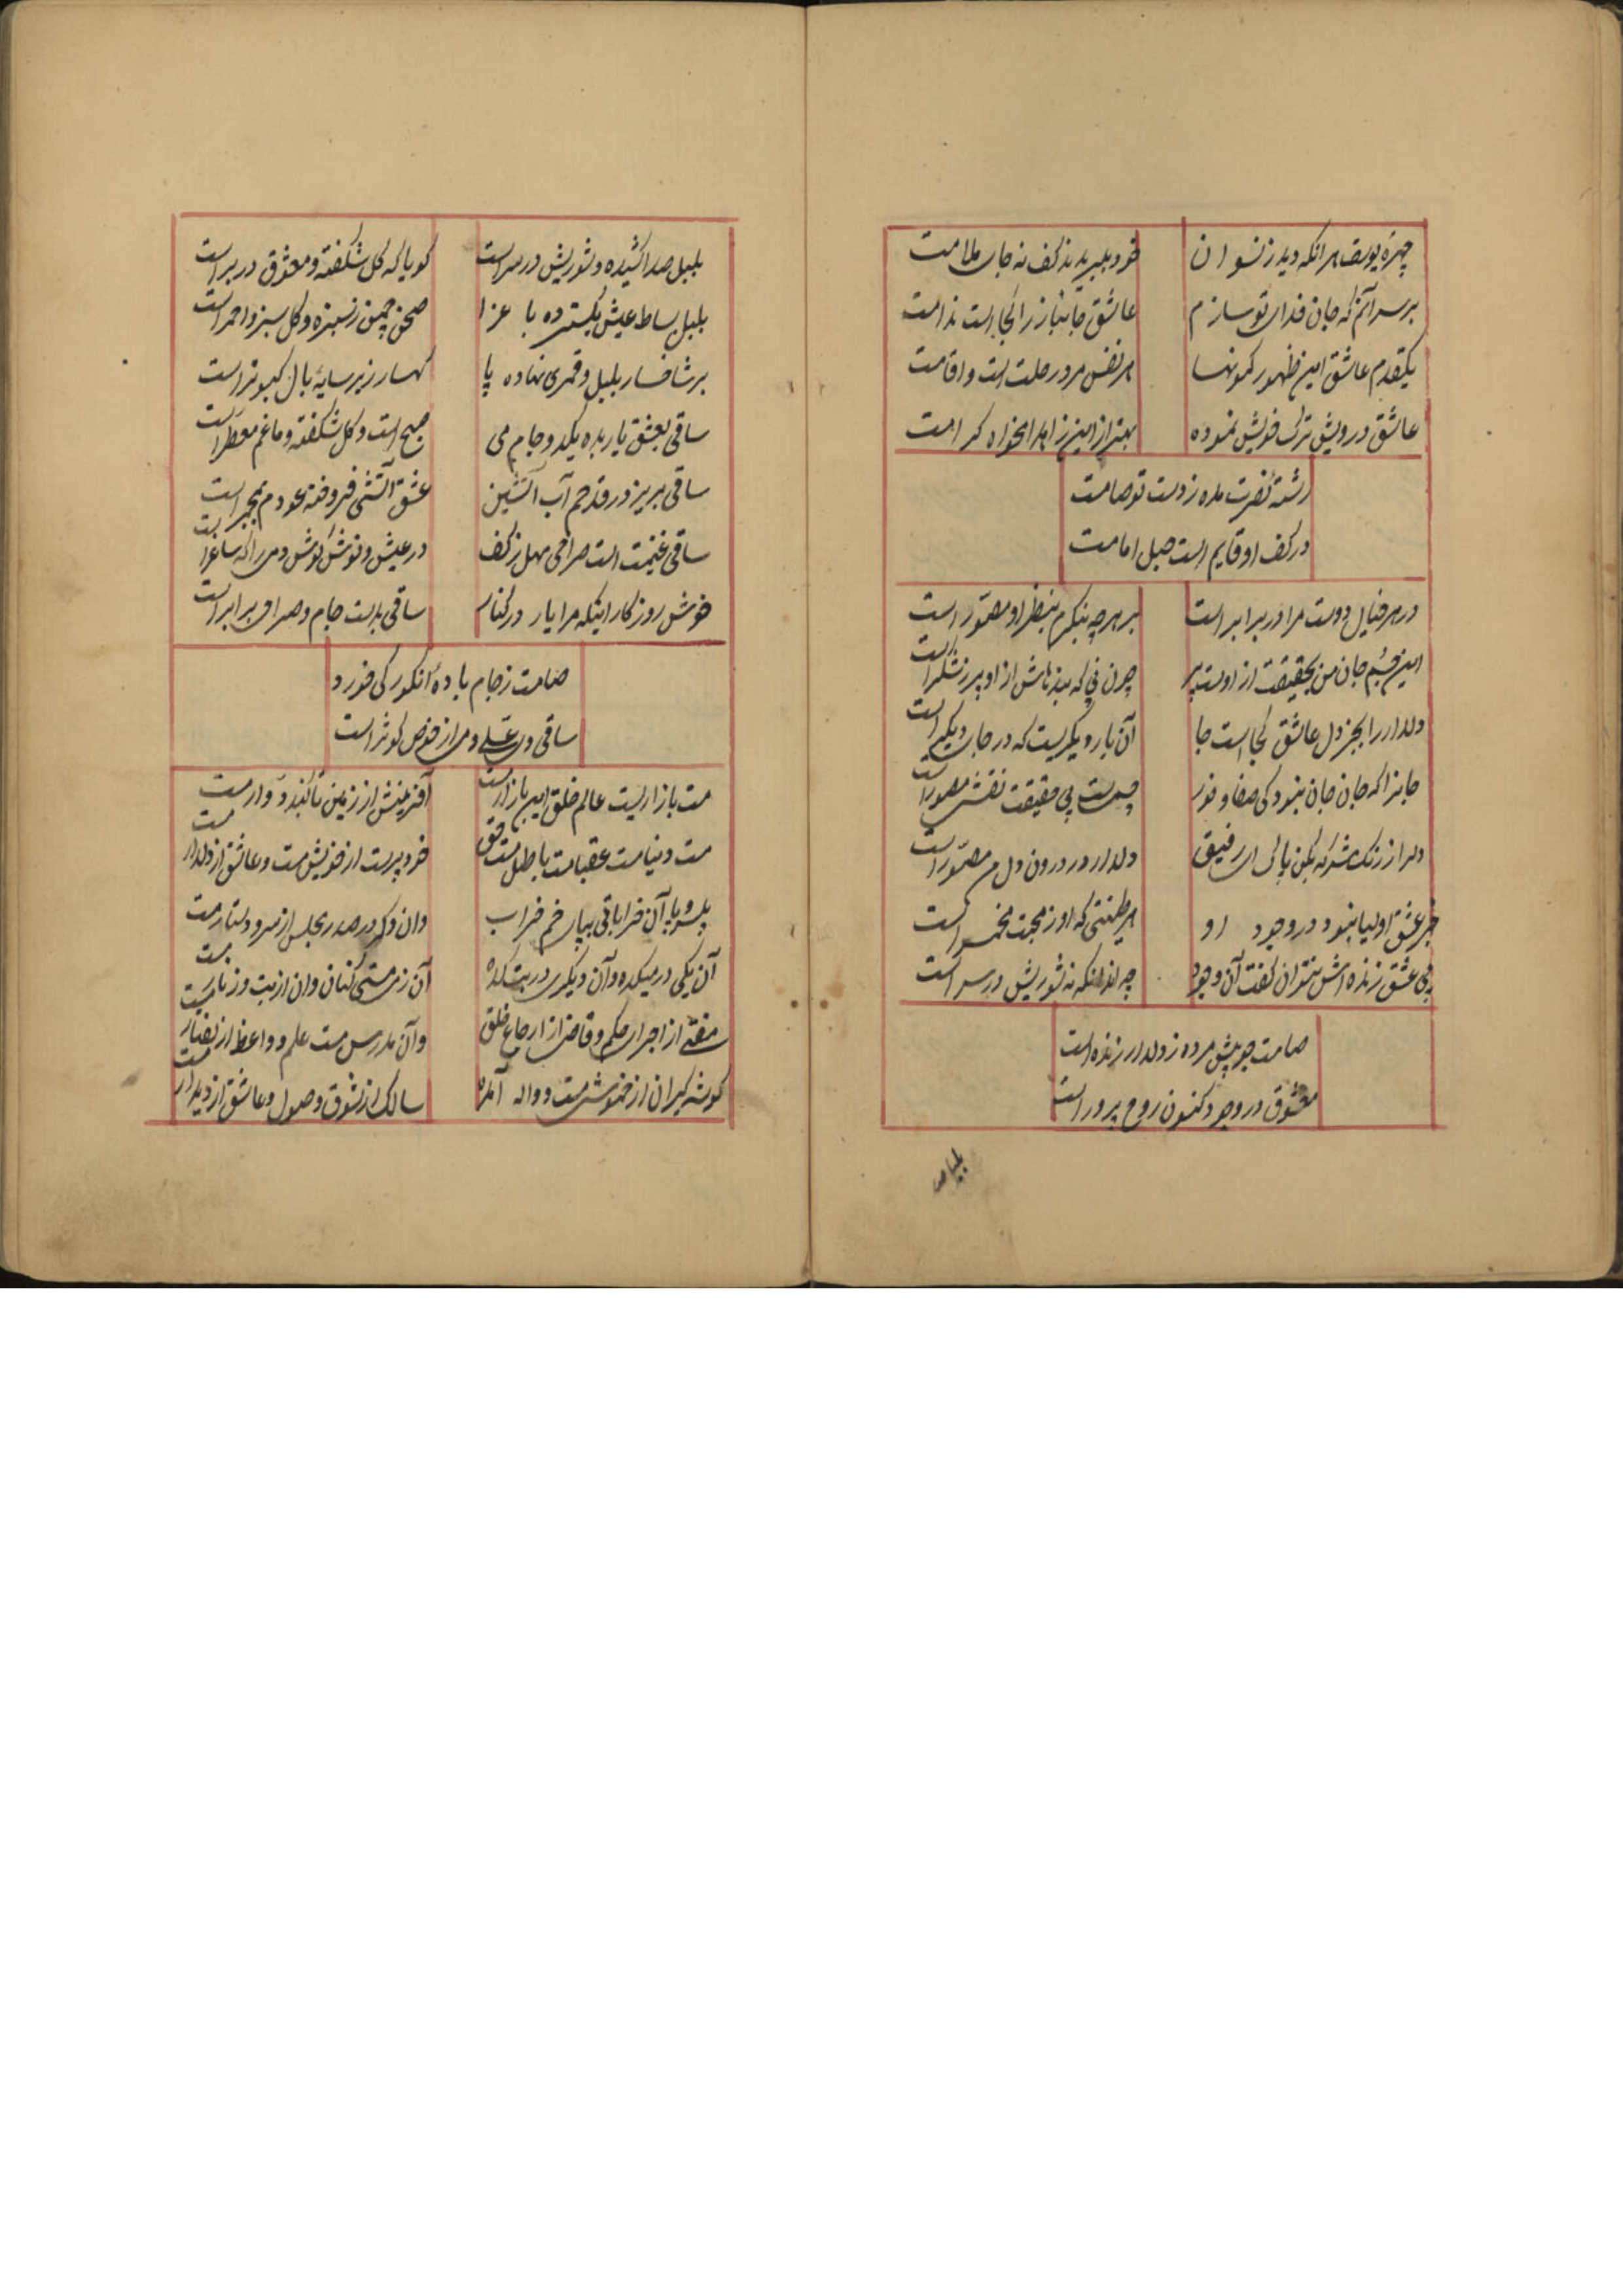 چهرهٔ یوسف هر آنکه دید ز نسوان
خود ببریدند کف نه جای ملامت
بر سر آنم که جان فدای تو سازم
عاشق جانباز را کجا است ندامت
یکقدم عاشق این ظهور کمونها
هر نفس مرد رحلت است و اقامت
عاشق درویش ترک خویش نموده
بهتر از این زاهدا مخواه کرامت
رشتهٔ نصرت مده ز دست تو صامت
در کف او قایم است حبل امامت
در هر خیال دوست مرا در برابر است
بر هرچه بنگرم بنظر او مصور است
این جسم جان من بحقیقت از اوست پر
چون نی که بند بندش از او پر ز شکر است
دلدار را بجز دل عاشق کجا است جا
آن یار دیگریست که در جای دیگر است
جانرا که جان جان نبود کی صفا و نور
بی حقیقت نقش مصور است
دلرا ز زنگ شرک بکن پاک ای رفیق
دلدار در درون دل مصور است
جز عشق اولیا نبود در وجود او
هر طینتی که او ز محبت مخمر است
بی عشق زنده اش نتوان گفت آن وجود
هر آنکه نه شوریش در سر است
صامت چو پیش مرده ز دلدار زنده است
معشوق در وجود کنون روح پرور است
بلبل صدا
بلبل صدا کشیده و شوریش در سر است
گویا که گل شکفته و معشوق در بر است
بلبل بساط عیش بگسترده با عزا
صحن چمن ز سبزه و گل سبز و احمر است
بر شاخسار بلبل و قمری نهاده پا
کهسار زیر سایهٔ بال کبوتر است
ساقی بعشق یار بده یکدو جام می
صبح است و گل شکفته و ماغم معطر است
ساقی بریز در قدحم آب آتشین
عشق آتشی فروخته عودم بمجمر است
ساقی غنیمت است صراحی مهل ز کف
در عیش و نوش کوش دمی را که ساغر است
خوش روزگار اینکه مرا یار در کنار
ساقی بدست جام و صراحی برابر است
صامت ز جام بادهٔ انگور کی خورد
ساقی ولی علی و می از حوض کوثر است
مست بازاریست عالم خلق این بازار مست
آفرینش از زمین تا گنبد دوار مست
مست دنیا مست عقبا مست باطل مست حق
خود پرست از خویش مست و عاشق از دلدار مست
آن خراباتی بپای خم خراب
وان دگر در صدر مجلس از سر و دستار مست
آن یکی در میکده و آن دیگری در بتکده
آن ز مستی کنان وان از بت و زنار مست
مفتی از اجرای حکم و قاضی از ارجاع خلق
وآن مدرس مست علم و واعظ از گفتار مست
گوشه گیران از خموشی مست و واله آمده
سالک از شوق وصول و عاشق از دیدار مست